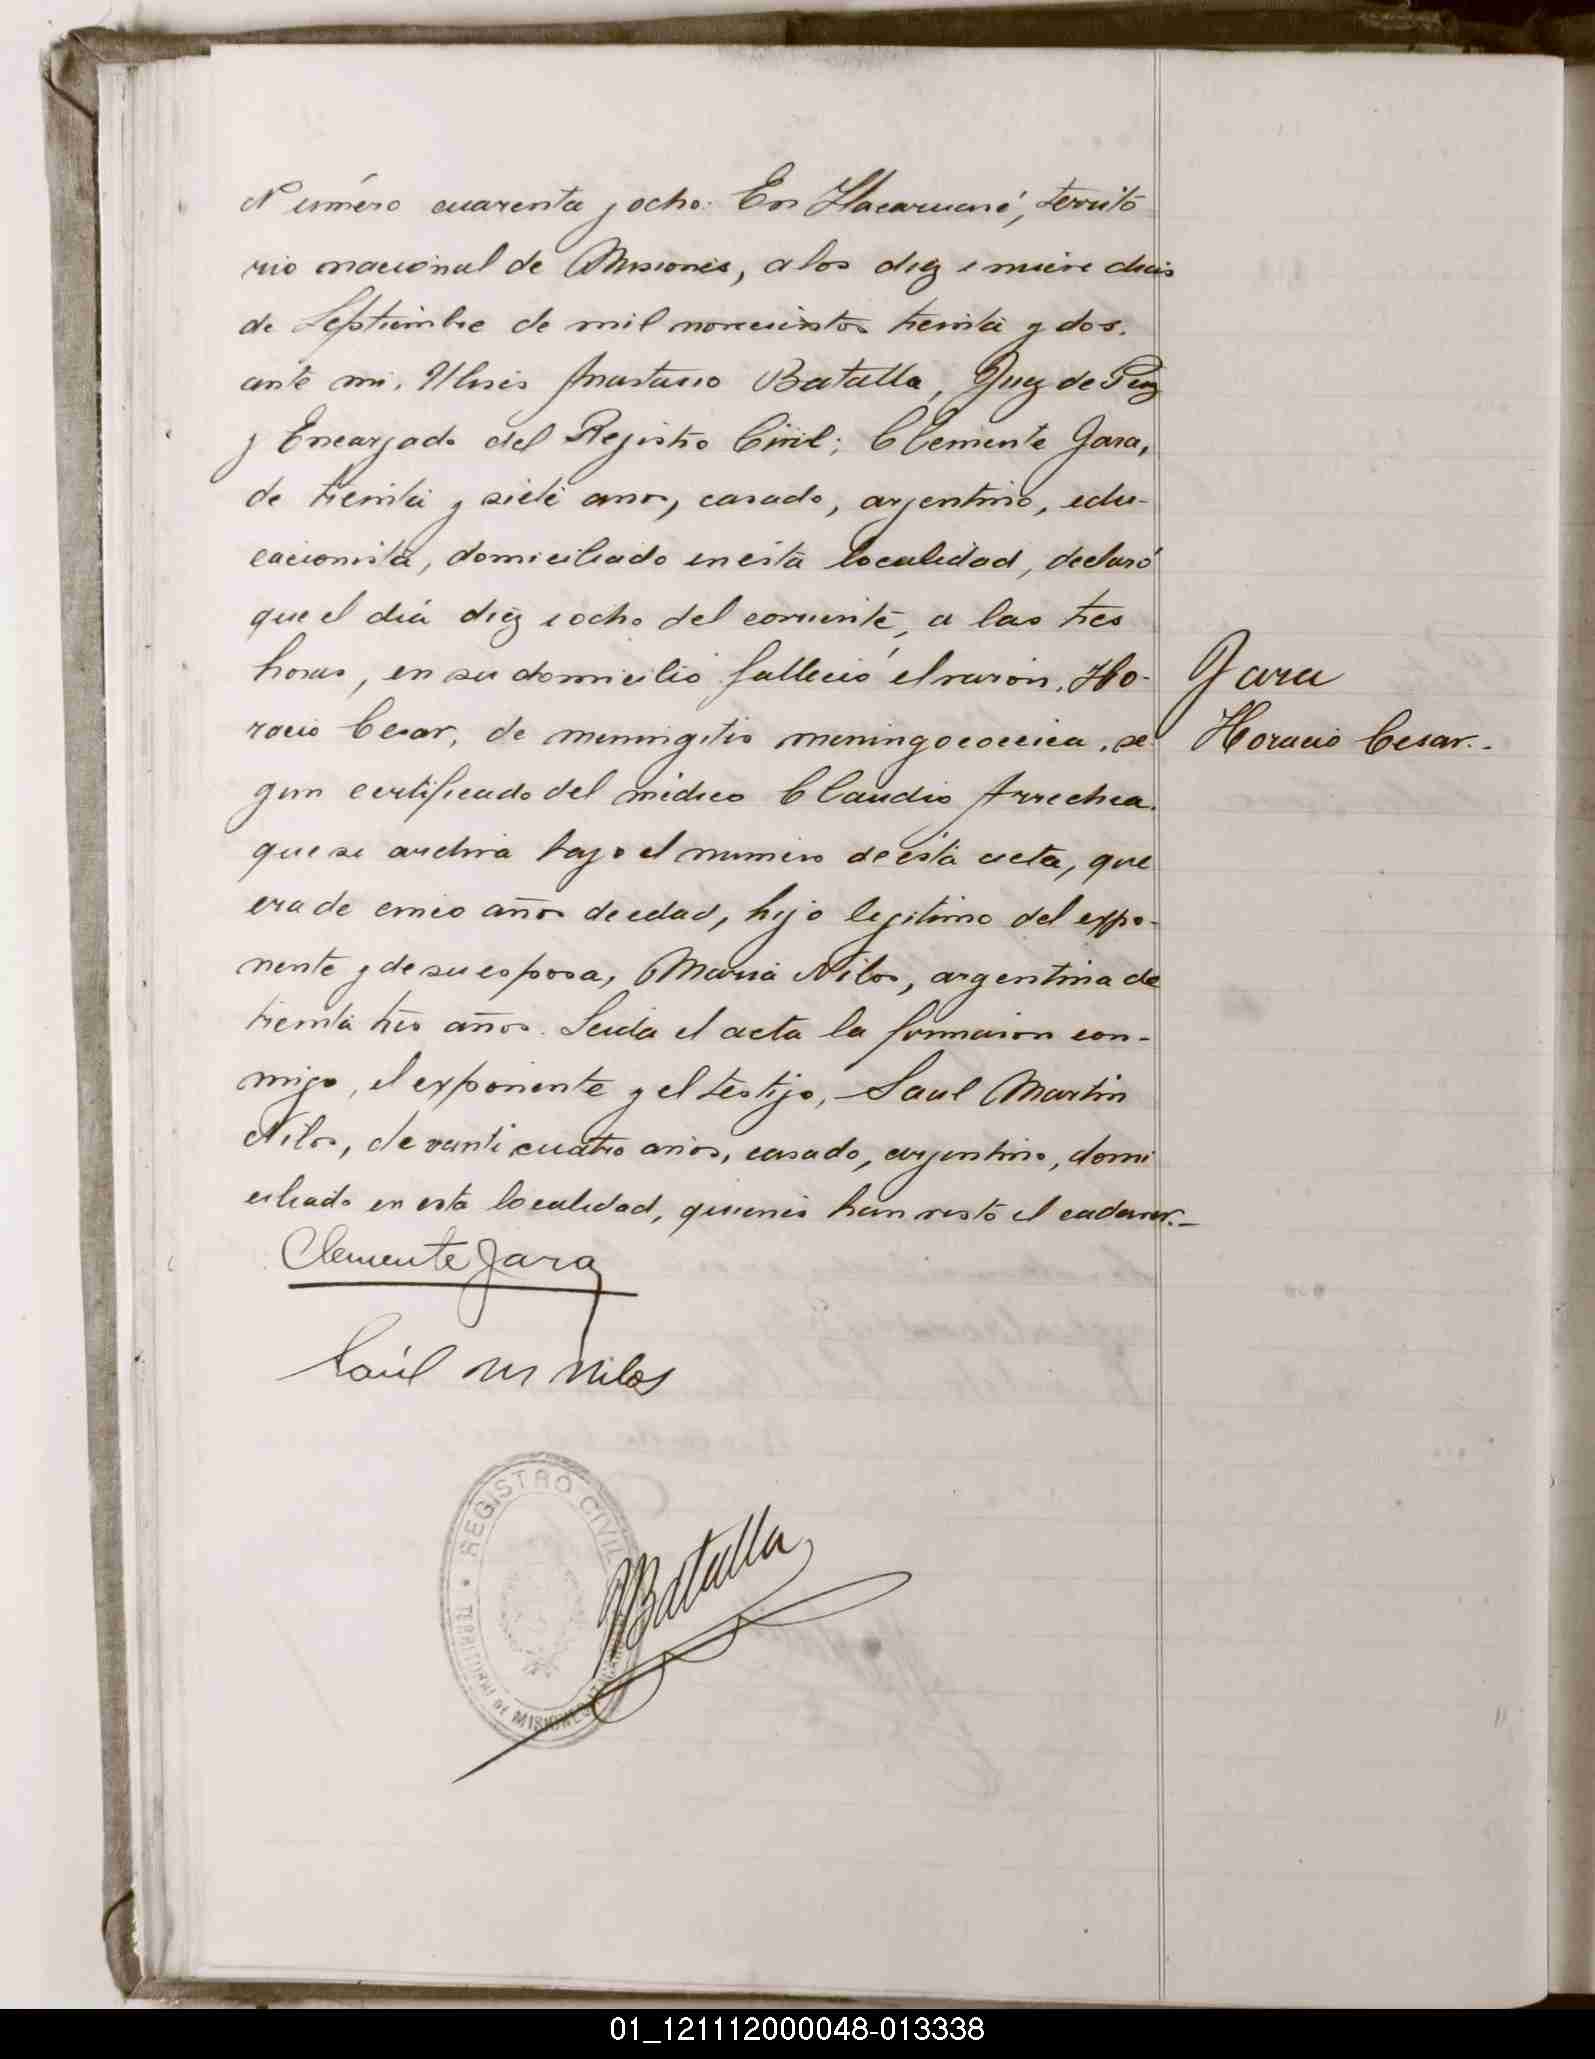 Número cuarenta y ocho. En Itacaruaré, territo
rio nacional de Misiones, a los diez i nueve dias
de Septiembre de mil novecientos treinta y dos.
ante mi, Ulises Anastasio Batalla, Juez de Paz
y Encargado del Registro Civil; Clemente Jara,
de treinta y siete anos, casado, argentino, edu-
cacionista, domiciliado en esta localidad, declaró
que el dia diez i ocho del corriente, a las tres
horas, en su domicilio falleció el varon, Ho-
racio Cesar, de meningitis meningococcica, se-
gun certificado del médico Claudio Arrechea.
que se archiva bajo el numero de esta acta, que
era de cinco años de edad, hijo legitimo del expo-
nente y de su esposa, Maria Nilos, argentina de
treinta tres años. Leida el acta la firmaron con-
migo, el exponente y el testigo, Saul Martin
Nilos, de venti cuatro años, casado, argentino, domi
ciliado en esta localidad, quienes han visto el cadaver.-
Jara
Horacio Cesar.-
Clemente Jara
Saúl M Nilos
REGISTRO CIVIL
TERRITORIO DE MISIONES
Batalla
01_121112000048-013338